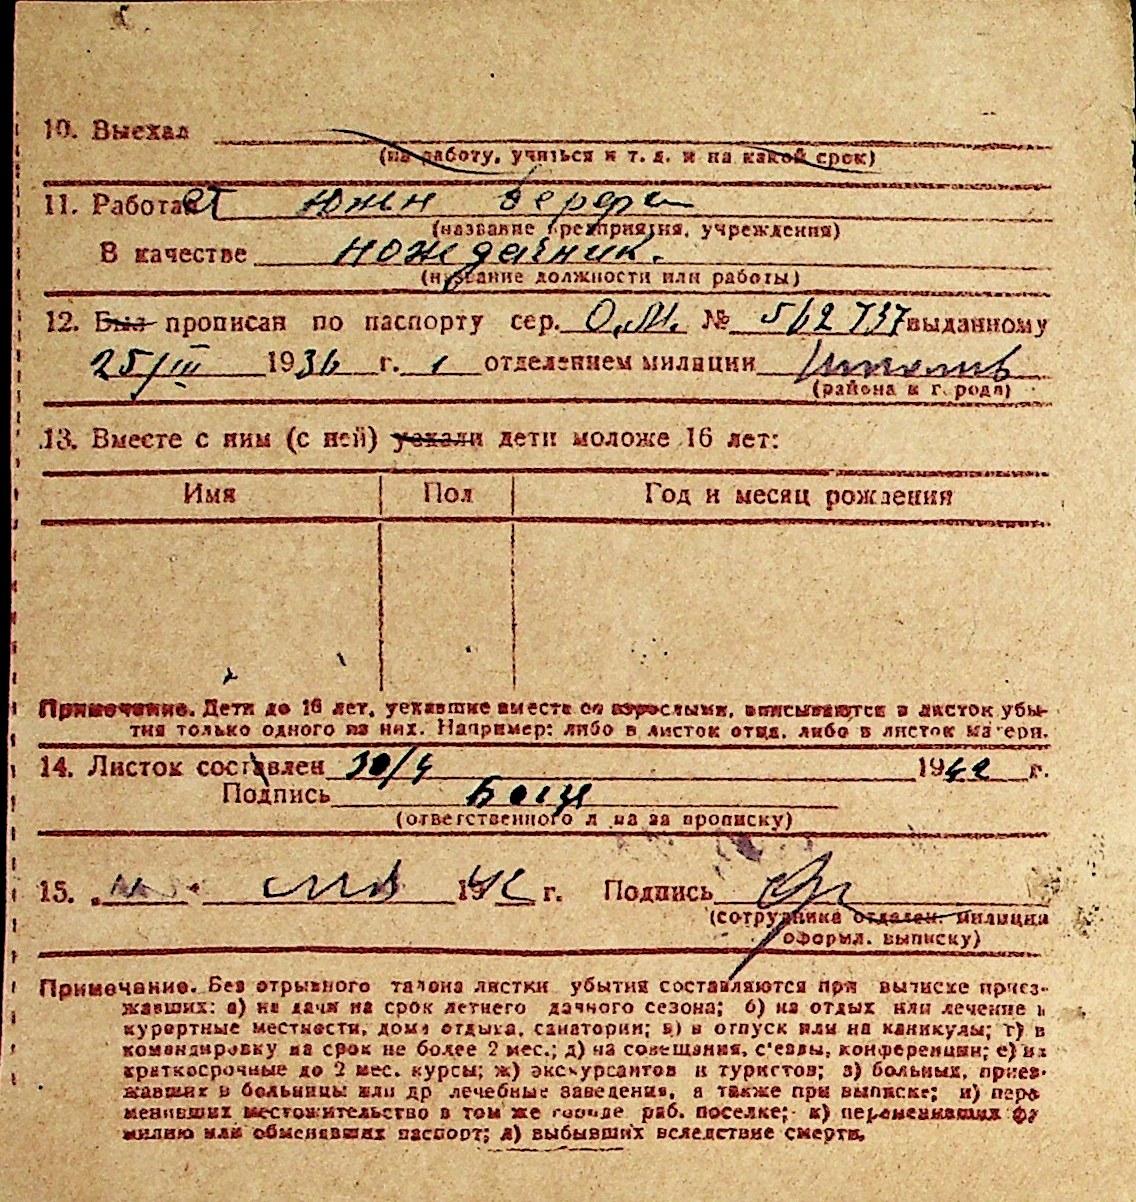 10. Выехал
(на работу, учиться и т. д. и на какой срок)
11. Работает Южн верфь
(название предприятия, учреждения)
В качестве
(название должности или работы)
12. Был прописан по паспорту сер. О.М. № 562737 выданному
25/III 1936 г. 1 отделением милиции
(района и города)
13. Вместе с ним (с ней) уехали дети моложе 16 лет:
Имя Пол Год и месяц рождения
Примечание. Дети до 16 лет, уехавшие вместе со взрослыми, вписываются в листок убы-
тия только одного из них. Например: либо в листок отца, либо в листок матери.
14. Листок составлен 30/4 1942 г.
Подпись
(ответственного лица за прописку)
15. 1942 г. Подпись
(сотрудника отделен. милиции
оформл. выписку)
Примечание. Без отрывного талона листки убытия составляются при выписке приез-
жавших: а) на дачи на срок летнего дачного сезона; б) на отдых или лечение в
курортные местности, дома отдыха, санатории; в) в отпуск или на каникулы; г) в
командировку на срок не более 2 мес.; д) на совещания, с'езды, конференции; е) на
краткосрочные до 2 мес. курсы; ж) экскурсантов и туристов; з) больных, приез-
жавших в больницы или др лечебные заведения, а также при выписке; и) пере
менивших местожительство в том же городе раб. поселке; к) переменивших фа
милию или обменявших паспорт; л) выбывших вследствие смерти.